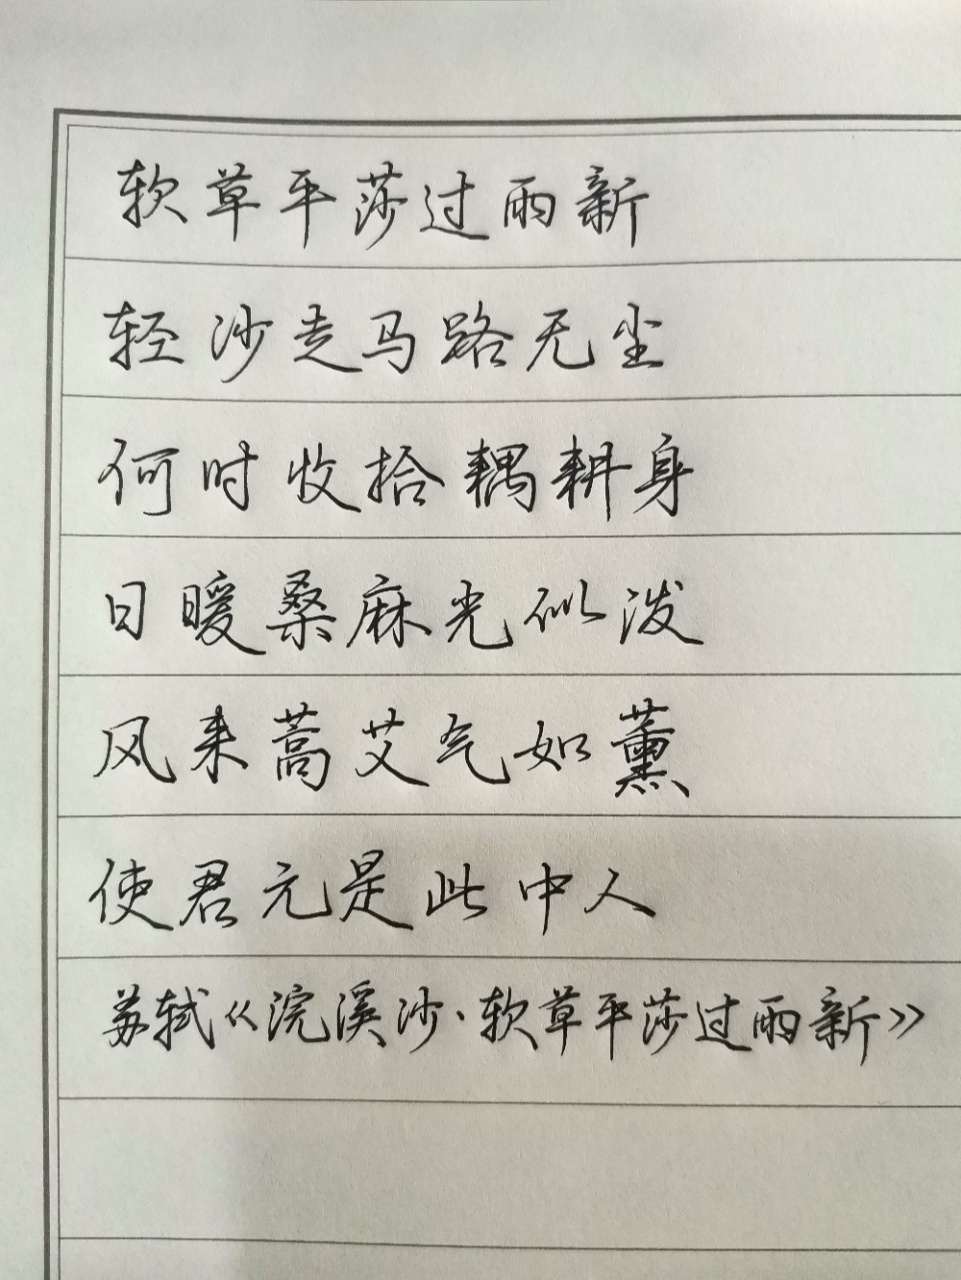 软草平莎过雨新
轻沙走马路无尘
何时收拾耦耕身
日暖桑麻光似泼
风来蒿艾气如薰
使君元是此中人
苏轼《浣溪沙·软草平莎过雨新》